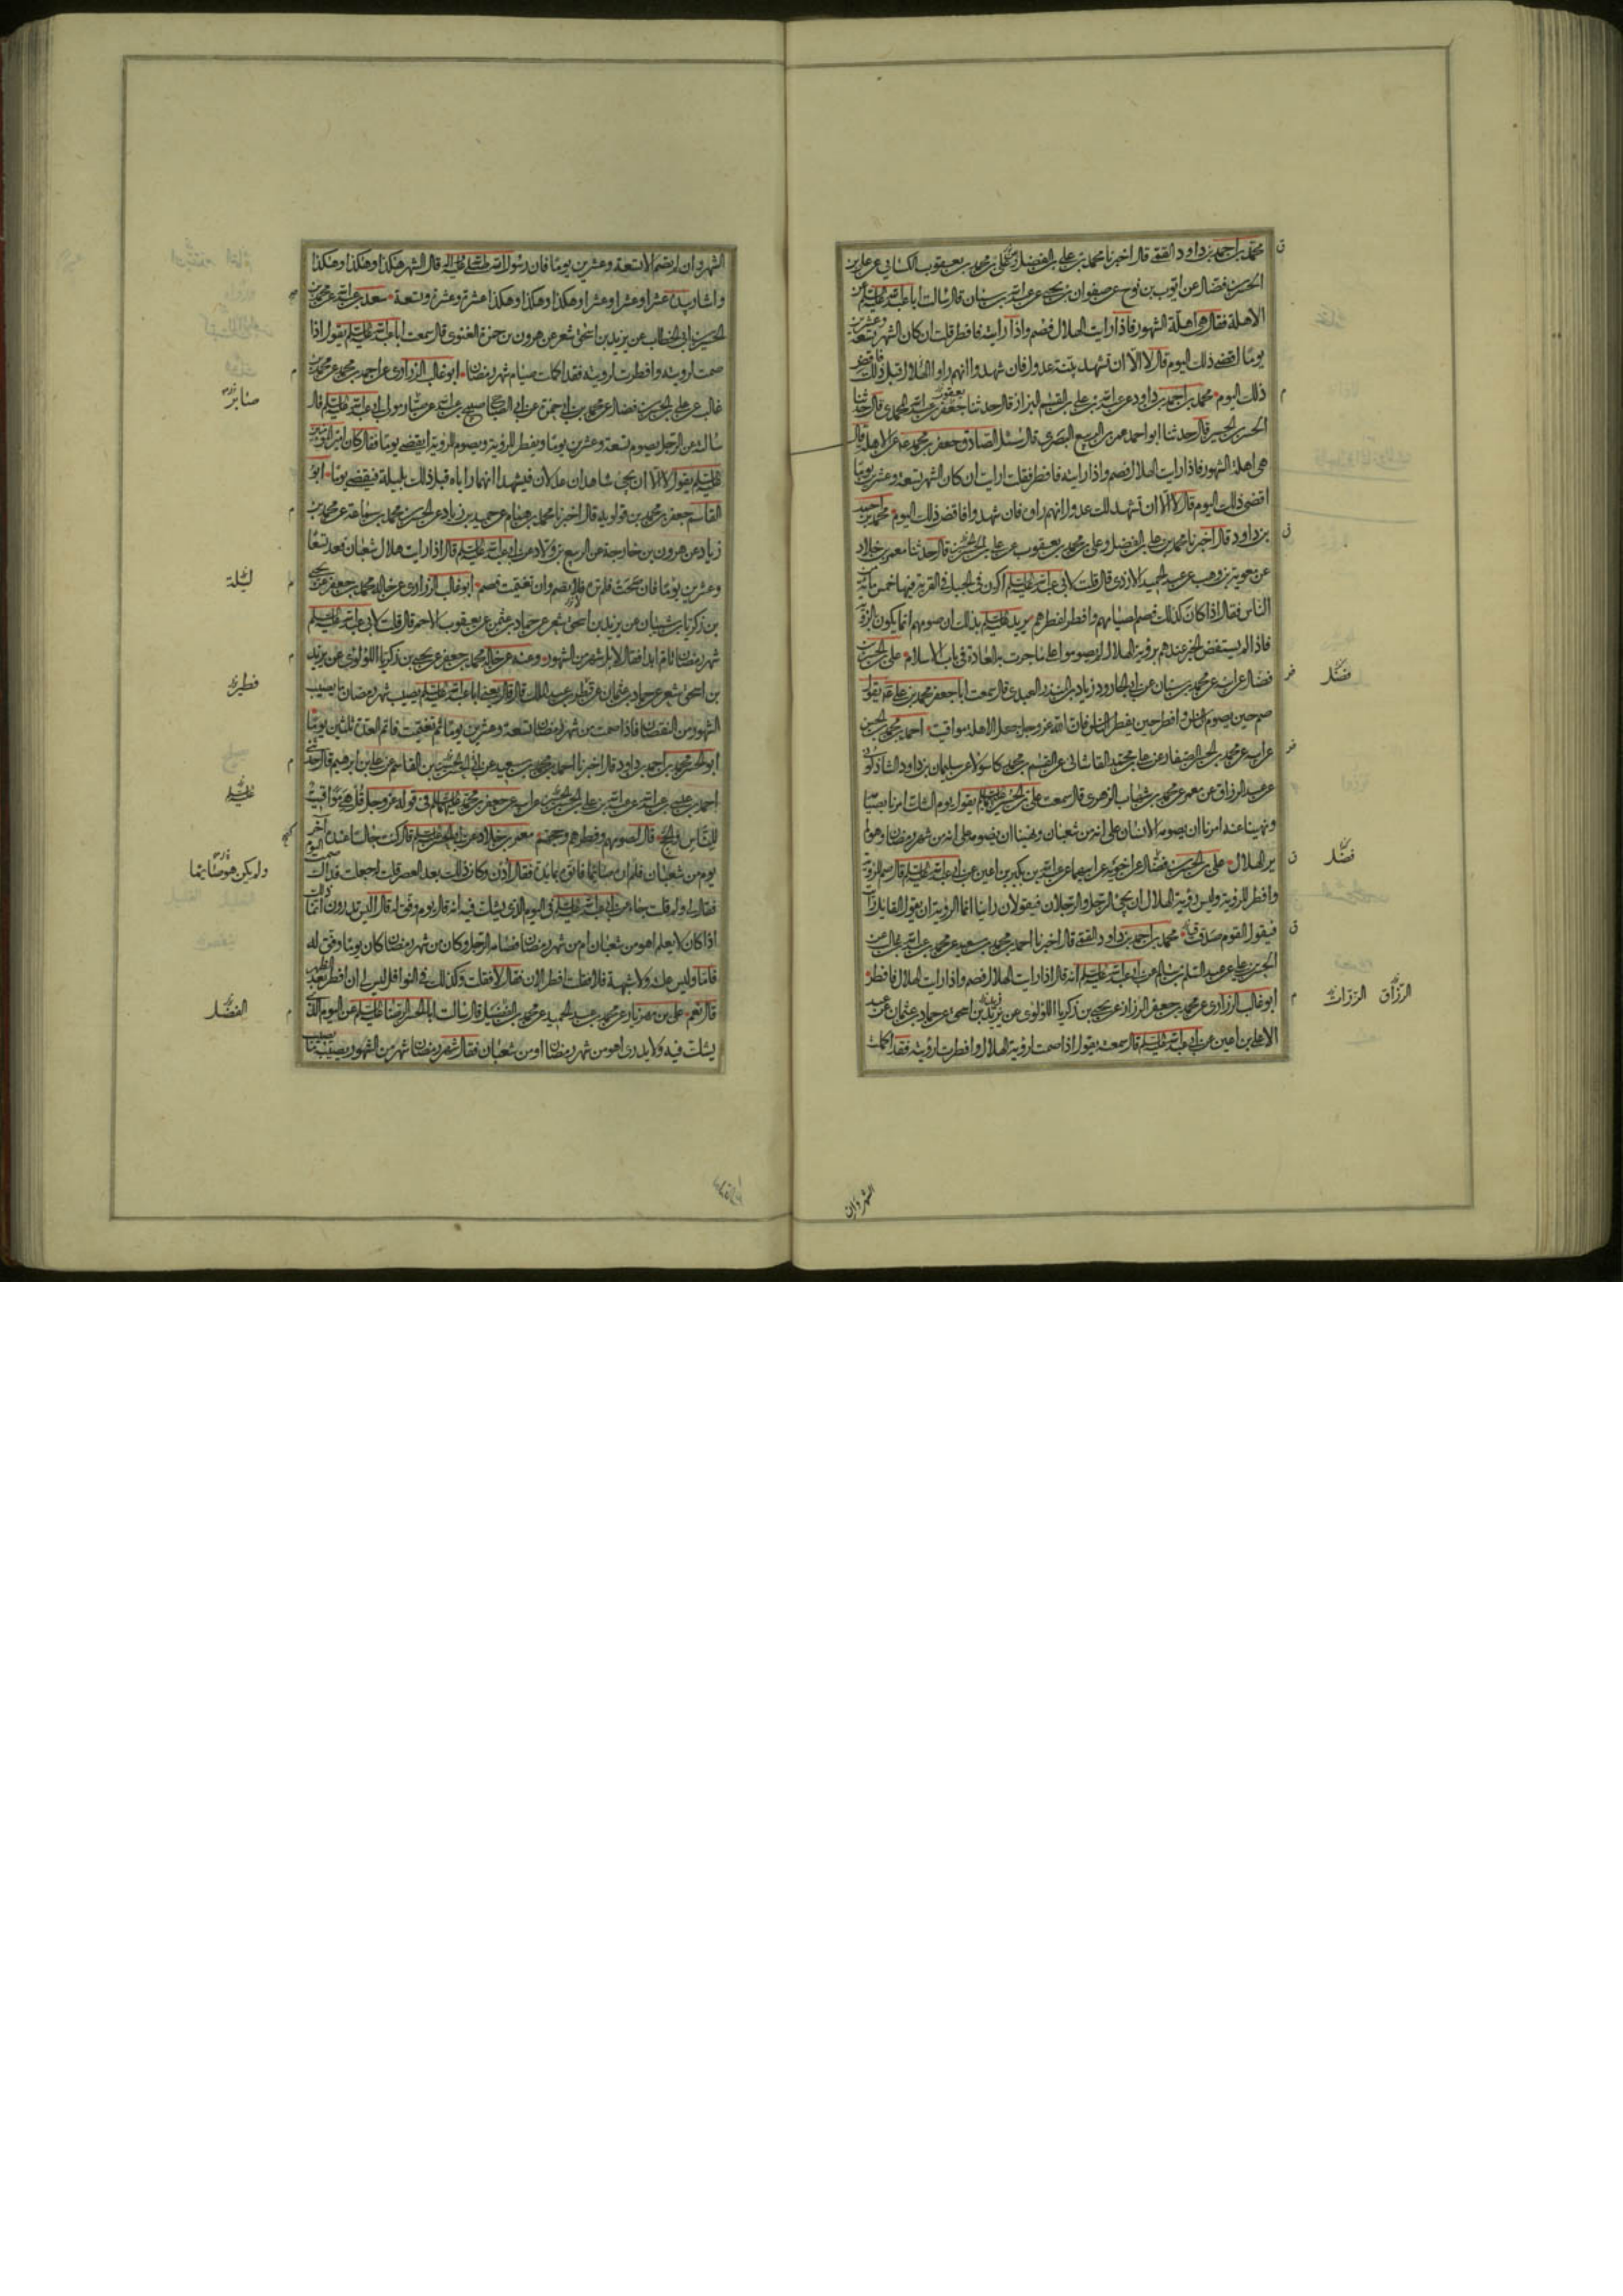 محمد بن احمد بن داود الفقيه قال اخبرنا محمد بن علي بن الفضل وعلي بن محمد بن يعقوب الكسائي عن علي بن
الحسن بن فضال عن ايوب بن نوح عن صفوان بن يحيى عن عبد الله بن سنان قال سالت ابا عبد الله عليه السلم عن
الاهلة فقال هي اهلة الشهور فاذا رايت الهلال فصم واذا رايته فافطر قلت ان كان الشهر تسعة وعشرين
يوما اقضي ذلك اليوم قال لا الا ان تشهد بينة عدول فان شهدوا انهم راوا الهلال قبل ذلك فاقض
ذلك اليوم محمد بن احمد بن داود عن عبد الله بن علي بن القسم البزاز قال حدثنا جعفر بن عبد الله المحمدي قال حدثنا
الحسن بن الحسين قال حدثنا ابو احمد عمر بن الربيع البصري قال سئل الصادق جعفر بن محمد عن الاهلة قال
هي اهلة الشهور فاذا رايت الهلال فصم واذا رايته فافطر فقلت ارايت ان كان الشهر تسعة وعشرين يوما
اقضي ذلك اليوم قال لا الا ان تشهد لك عدول انهم راوه فان شهدوا فاقض ذلك اليوم محمد بن احمد
بن داود قال اخبرنا محمد بن علي بن الفضل وعلي بن محمد بن يعقوب عن علي بن الحسن قال حدثنا معمر بن خلاد
عن معوية بن وهب عن عبد الحميد الازدي قال قلت لابي عبد الله عليه السلم اكون في الجبل في القرية فيها خمس مائة من
الناس فقال اذا كان كذلك فصم لصيامهم وافطر لفطرهم يريد عليه السلم بذلك ان صومهم انما يكون بالرؤية
فاذا لم يستفض الخبر عندهم برؤية الهلال لم يصوموا على ما جرت به العادة في باب الاسلام علي بن الحسن بن
فضال عن ابيه عن محمد بن سنان عن ابي الجارود زياد بن المنذر العبدي قال سمعت ابا جعفر محمد بن علي يقول
صم حين يصوم الناس وافطر حين يفطر الناس فان الله عز وجل جعل الاهلة مواقيت احمد بن محمد بن الحسن
عن ابيه عن محمد بن الحسن الصفار عن علي بن محمد القاشاني عن القسم بن محمد كاسولا عن سليمان بن داود الشاذكوني
عن عبد الرزاق عن معمر عن محمد بن شهاب الزهري قال سمعت علي بن الحسين عليهما السلم يقول يوم الشك امرنا بصيامه
ونهينا عنه امرنا ان يصومه الانسان على انه من شعبان ونهينا ان يصومه على انه من شهر رمضان وهو لم
ير الهلال علي بن الحسن بن فضال عن اخويه عن ابيهما عن عبد الله بن بكير بن اعين عن ابي عبد الله عليه السلم قال صم للرؤية
وافطر للرؤية وليس رؤية الهلال ان يجئ الرجل والرجلان فيقولان راينا انما الرؤية ان يقول القايل رايت
فيقول القوم صدقت محمد بن احمد بن داود الفقيه قال اخبرنا احمد بن محمد بن سعيد عن محمد بن عبد الله بن غالب عن
الحسن بن علي عن عبد السلم بن سالم عن ابي عبد الله عليه السلم انه قال اذا رايت الهلال فصم واذا رايت الهلال فافطر
ابو غالب الزراري عن محمد بن جعفر الرزاز عن يحيى بن زكريا اللؤلؤي عن يزيد بن اسحق عن حماد بن عثمان عن عبد
الاعلى بن اعين عن ابي عبد الله عليه السلم قال سمعته يقول اذا صمت لرؤية الهلال وافطرت لرؤيته فقد اكملت
فضل
فضل
الرزاق الرزاز
الشهر وان
الشهر وان لم تصم الا تسعة وعشرين يوما فان رسول الله صلى الله عليه واله قال الشهر هكذا وهكذا وهكذا
واشار بيده عشرا وعشرا وعشرا وهكذا وهكذا وهكذا عشرة وعشرة وتسعة سعد بن عبد الله عن محمد بن
الحسين بن ابي الخطاب عن يزيد بن اسحق شعر عن هرون بن حمزة الغنوي قال سمعت ابا عبد الله عليه السلم يقول اذا
صمت لرويته وافطرت لرويته فقد اكملت صيام شهر رمضان ابو غالب الزراري عن احمد بن محمد عن محمد بن
غالب عن علي بن الحسن بن فضال عن محمد بن ابي حمزة عن ابي الصباح صبيح بن عبد الله عن صابر مولى ابي عبد الله عليه السلم قال
سالته عن الرجل يصوم تسعة وعشرين يوما ويفطر للرؤية ويصوم للرؤية ايقضي يوما فقال كان امير المؤمنين
عليه السلم يقول لا الا ان يجئ شاهدان عدلان فيشهدا انهما راياه قبل ذلك بليلة فيقضي يوما ابو
القاسم جعفر بن محمد بن قولويه قال اخبرنا محمد بن همام عن حميد بن زياد عن الحسن بن محمد بن سماعة عن محمد بن
زياد عن هرون بن خارجة عن الربيع بن ولاد عن ابي عبد الله عليه السلم قال اذا رايت هلال شعبان فعد تسعا
وعشرين يوما فان صحت فلم تره فلا تصم وان تغيمت فصم ابو غالب الزراري عن خاله محمد بن جعفر عن يحيى
بن زكريا بن شيبان عن يزيد بن اسحق شعر عن حماد بن عثمن عن يعقوب الاحمر قال قلت لابي عبد الله عليه السلم
شهر رمضان تام ابدا فقال لا بل شهر من الشهور وعنه عن خاله محمد بن جعفر عن يحيى بن زكريا اللؤلؤي عن يزيد
بن اسحق شعر عن حماد بن عثمان عن فطر بن عبد الملك قال قال يعني ابا عبد الله عليه السلم يصيب شهر رمضان ما يصيب
الشهور من النقصان فاذا صمت من شهر رمضان تسعة وعشرين يوما ثم تغيمت فاتم العدة ثلثين يوما
ابو الحسن محمد بن احمد بن داود قال اخبرنا احمد بن محمد بن سعيد عن ابي الحسن بن القاسم عن علي بن ابرهيم قال حدثني
احمد بن عيسى بن عبد الله عن عبد الله بن علي بن الحسن عن ابيه عن جعفر بن محمد عليهما السلم في قوله عز وجل قل هي مواقيت
للناس والحج قال لصومهم وفطرهم وحجهم معمر بن خلاد عن ابي الحسن عليه السلم قال كنت جالسا عنده اخر
يوم من شعبان فلم اره صائما فاتوه بمايدة فقال ادن وكان ذلك بعد العصر قلت له جعلت فداك صمت اليوم
فقال لي ولم قلت جاء عن ابي عبد الله عليه السلم في اليوم الذي يشك فيه انه قال يوم وفق له قال اليس تدرون انما ذلك
اذا كان لا يعلم اهو من شعبان ام من شهر رمضان فصامه الرجل وكان من شهر رمضان كان يوما وفق له
فاما وليس علة ولا شبهة فلا فقلت افطر الان فقال لا فقلت وكذلك في النوافل ليس لي ان افطر بعد الظهر
قال نعم علي بن مهزيار عن محمد بن عبد الحميد عن محمد بن الفضيل قال سالت ابا الحسن الرضا عليه السلم عن اليوم الذي
يشك فيه ولا يدرى اهو من شهر رمضان او من شعبان فقال شهر رمضان شهر من الشهور يصيبه ما يصيب
صابر
ليلة
فطر
عليه السلم
ولم يكن هو صايما
الفضل